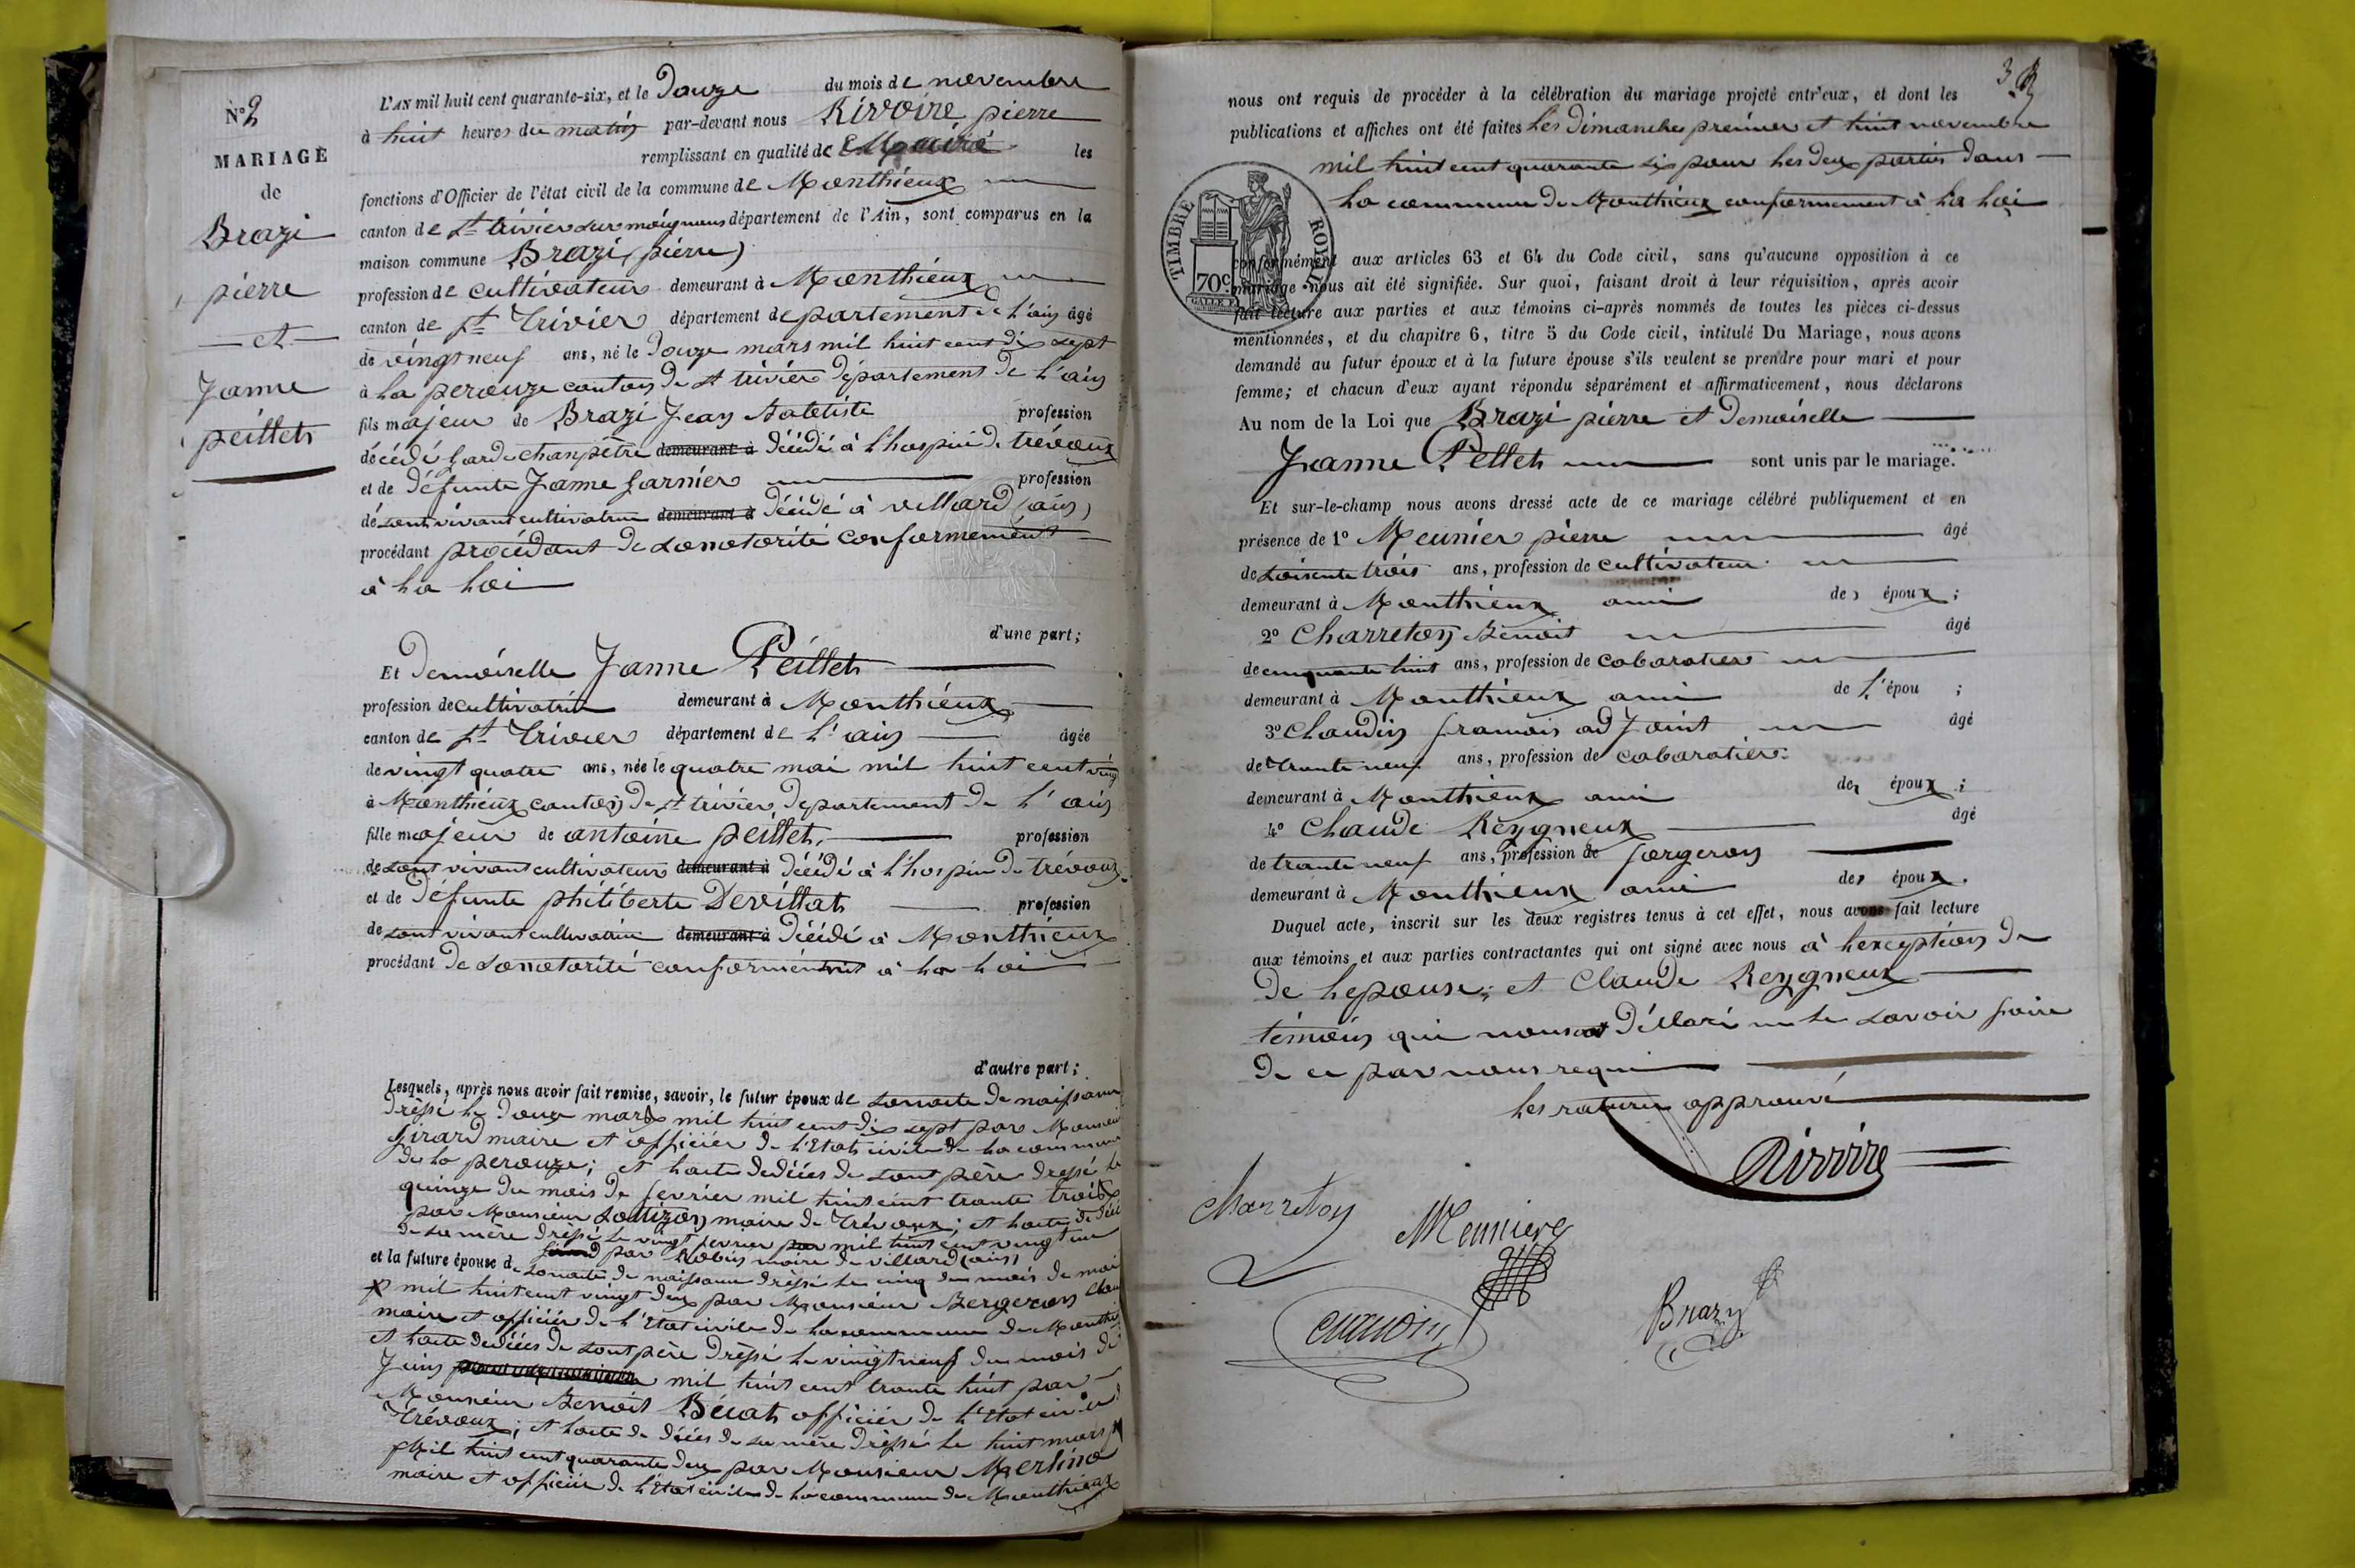 N° 2
MARIAGE
de
Brazi
pierre
et
Janne
peillet
L'AN mil huit cent quarante-six, et le Douze du mois de novembre
à huit heures du matin par-devant nous Rivoire pierre
remplissant en qualité de Maire les
fonctions d'Officier de l'état civil de la commune de Monthieux
canton de St trivier sur moignans département de l'Ain, sont comparus en la
maison commune Brazi (pierre)
profession de cultivateur demeurant à Monthieux
canton de St Trivier département de partement de l'ain âgé
de vingt neuf ans, né le Douze mars mil huit cent dix sept
à la perouze canton de St trivier département de l'ain
fils majeur de Brazi Jean batetiste profession
décédé garde chanpêtre demeurant à décédé à l'hospice de trévoux
et de défunte Janne garnier profession
de sont vivant cultivatrice demeurant à décédé à villard (ain)
procédant procédant de sonotorité conformement
à la loi
d'une part;
Et Demoiselle Janne Peillet
profession de cultivatrice demeurant à Monthieux
canton de St Trivier département de l'ain âgée
de vingt quatre ans, née le quatre mai mil huit cent vingt
à Monthieux canton de St trivier departement de l'ain
fille majeur de antoine peillet profession
de sont vivant cultivateur demeurant à décédé à l'hospice de trévoux
et de défunte philiberte Devillat profession
de sont vivant cultivatrice demeurant à décédé à Monthieux
procédant de sonotorité conformément à la loi
d'autre part;
Lesquels, après nous avoir fait remise, savoir, le futur époux de sonacte de naissance
drèssé le douze mars mil huit cent dix sept par Monsieur
girard maire et officier de l'Etat civile de la commune
de la perouze; et lacte dedécès de sont père dressé le
quinze du mois de fevrier mil huit cent trante trois
par Monsieur maire de Trévoux; et lacte de décé
de sa mère drèssé le vingt fevrier mil huit cent vingt un
par Robin maire de villard (ain)
et la future épouse de sonacte de naissance drèssé le cinq du mois de mai
mil huit cent vingt deux par Monsieur Bergeron
maire et officier de l'Etat civile de la commune de Monthieux
et lacte dedécès de sont père drèssé le vingt neuf du mois de
Juin mil huit cent trante huit par
Monsieur Benoit Bécat officier de l'Etat civile
Trévoux; et lacte de décès de sa mère drèssé le huit mars
Mil huit cent quarante deux par Monsieur Merlino
maire et officier de l'Etat civile de la commune de Monthieux
3
nous ont requis de procéder à la célébration du mariage projeté entr'eux, et dont les
publications et affiches ont été faites les dimanches premier et huit novembre
mil huit cent quarante six pour les deux parties dans
la commune de Monthieux conformement à la loi
TIMBRE ROYAL
70c
conformément aux articles 63 et 64 du Code civil, sans qu'aucune opposition à ce
mariage nous ait été signifiée. Sur quoi, faisant droit à leur réquisition, après avoir
fait lecture aux parties et aux témoins ci-après nommés de toutes les pièces ci-dessus
mentionnées, et du chapitre 6, titre 5 du Code civil, intitulé Du Mariage, nous avons
demandé au futur époux et à la future épouse s'ils veulent se prendre pour mari et pour
femme; et chacun d'eux ayant répondu séparément et affirmativement, nous déclarons
Au nom de la Loi que Brazi pierre et Demoiselle
Jeanne Pellet sont unis par le mariage.
Et sur-le-champ nous avons dressé acte de ce mariage célébré publiquement et en
présence de 1° Meunier pierre âgé
de soisente trois ans, profession de cultivateur
demeurant à Monthieux ami des époux;
2° Charreton Benoit âgé
de cinquante huit ans, profession de cabaratier
demeurant à Monthieux ami de l'épou ;
3° Claudin framois adJoint âgé
de trante neuf ans, profession de cabaratier
demeurant à Monthieux ami des époux;
4° Claude Reygneux âgé
de trante neuf ans, profession de forgeron
demeurant à Monthieux ami des époux.
Duquel acte, inscrit sur les deux registres tenus à cet effet, nous avons fait lecture
aux témoins et aux parties contractantes qui ont signé avec nous à lexception de
de lepouse; et Claude Reygneux
témoin qui nous ont déclaré ne le savoir faire
de ce par nous requi
les rature approuvé
Rivoire
Charreton
Meuniere
Claudin
Brazy